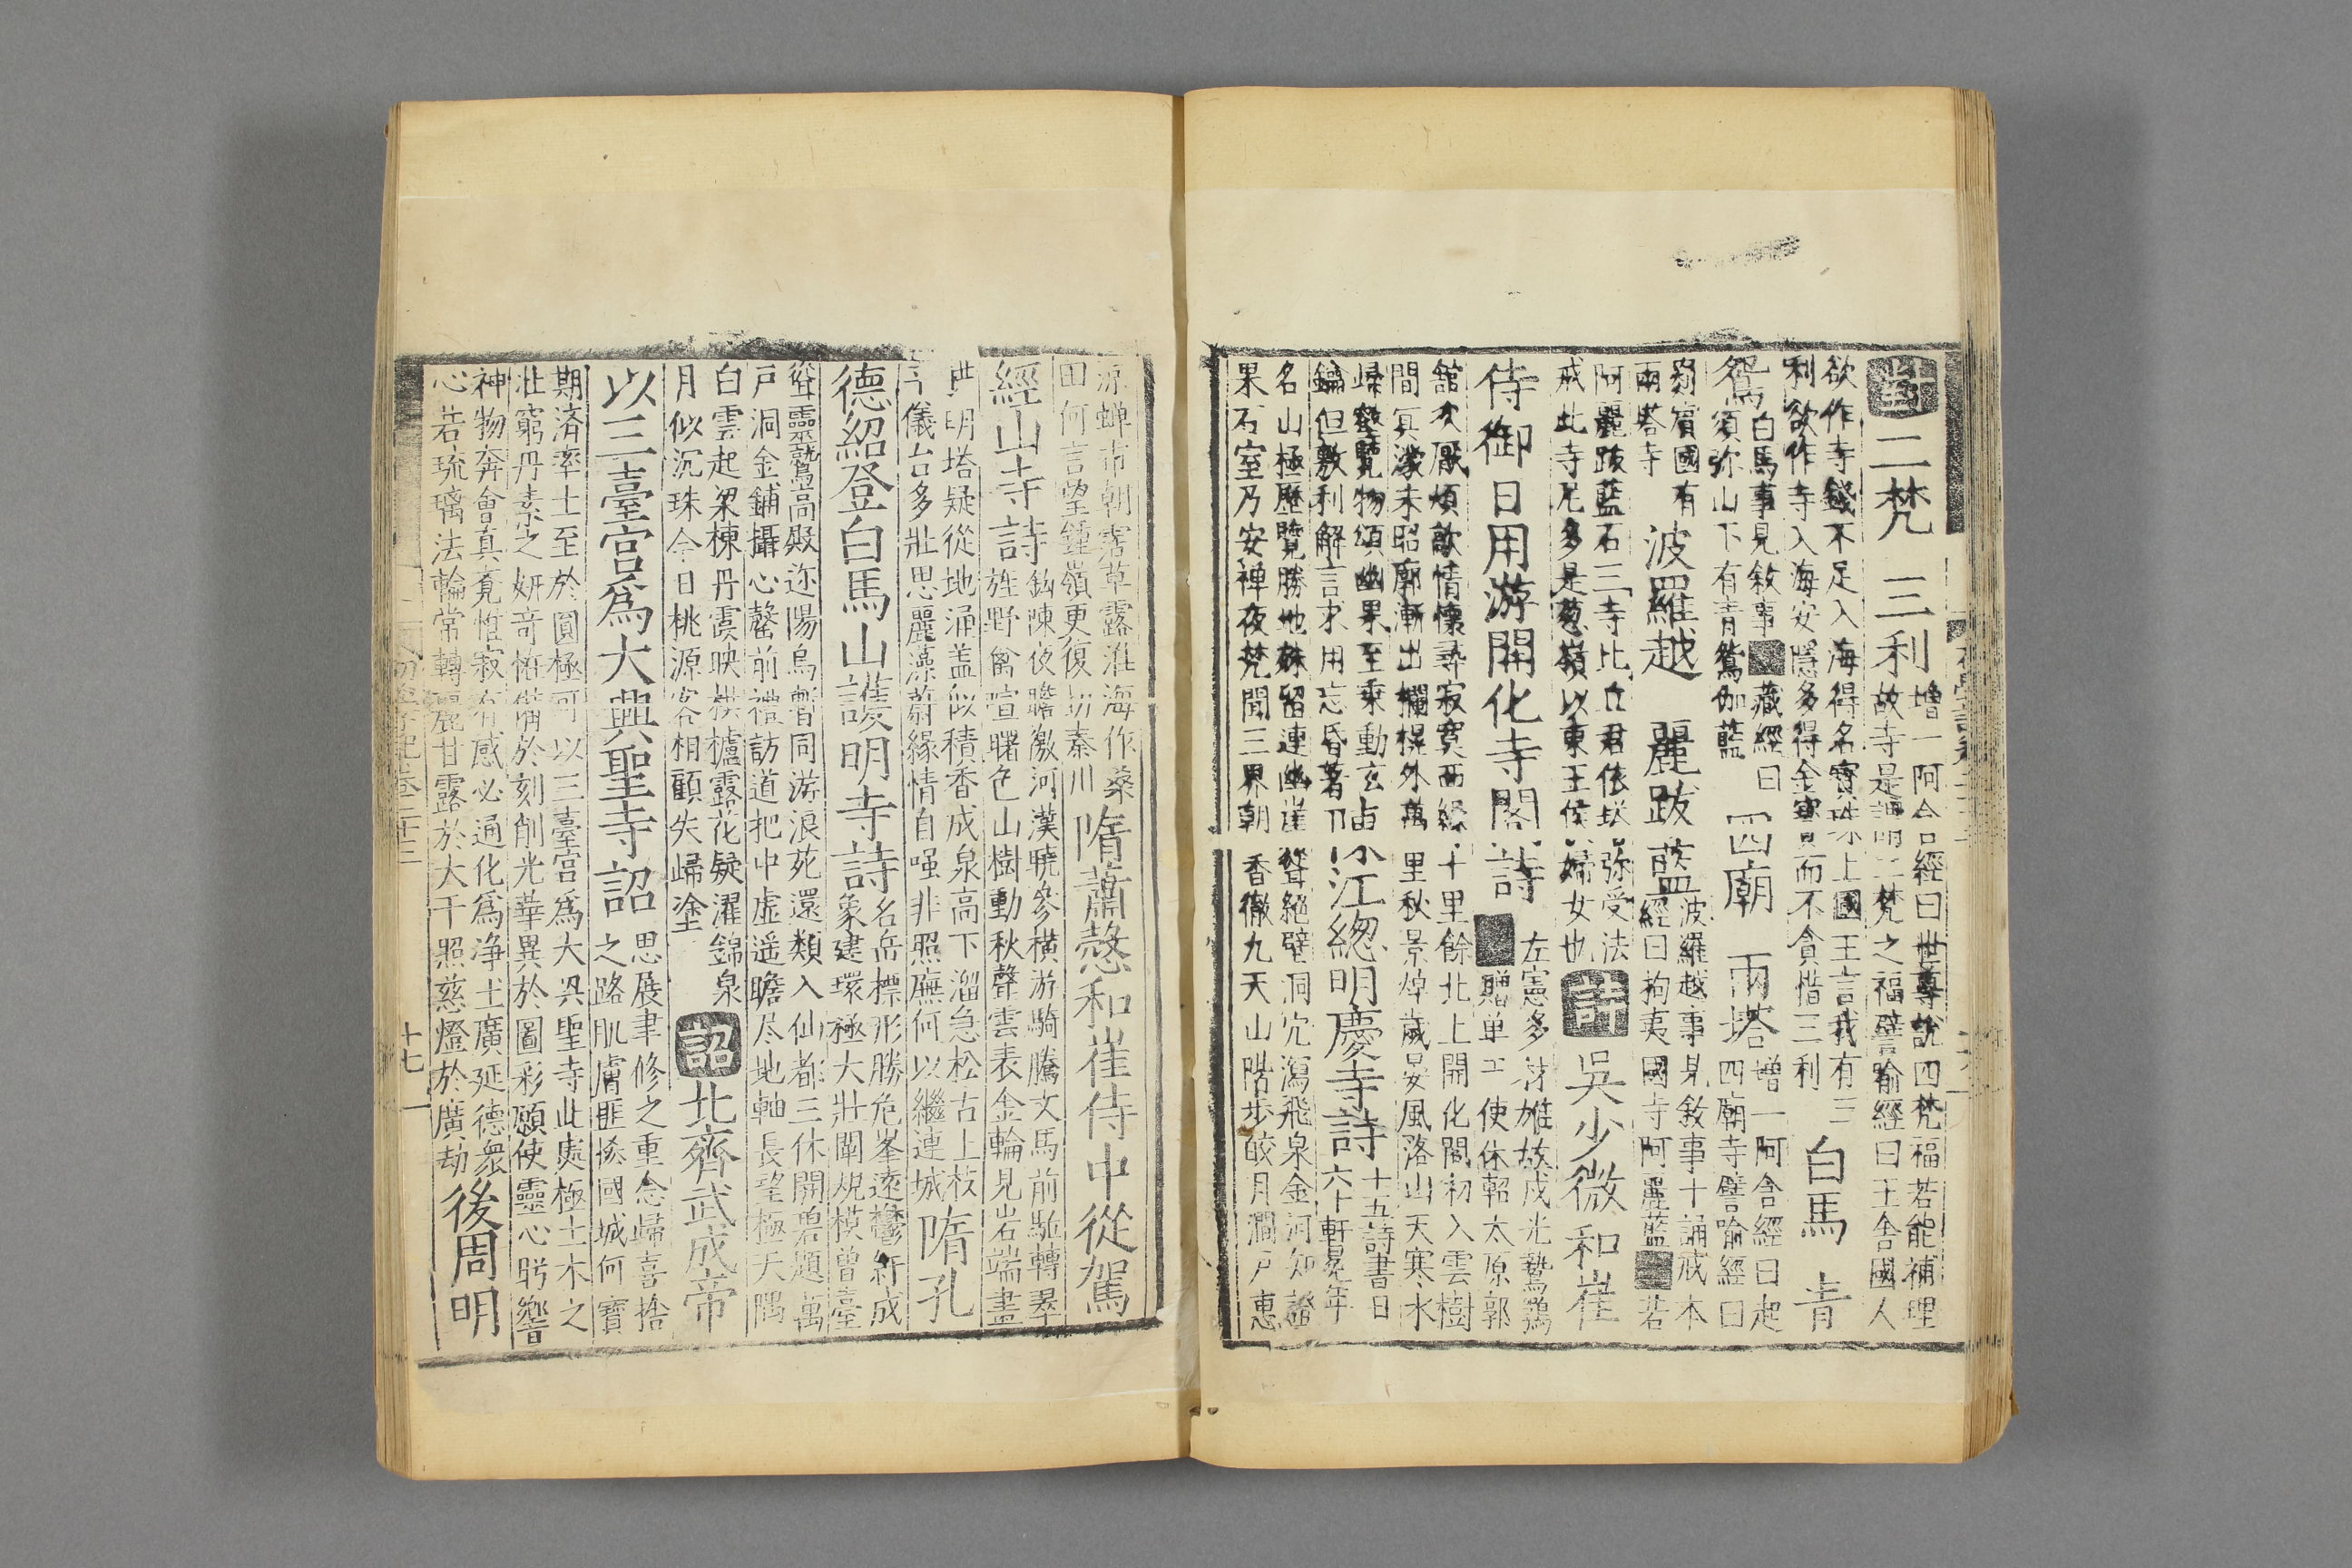 對 二梵 三利 增一阿含經曰世尊說四梵福若能補理
故寺是謂二梵之福譬喻經曰王舍國人
欲作寺錢不足入海得名寶珠上國王言我有三
利欲作寺入海安隱多得金寶而不貪惜三利 白馬 青
鴛 白馬事見敘事 藏經曰
須弥山下有青鴛伽藍 四廟 兩塔 增一阿含經曰起
四廟寺譬喻經曰
罽賓國有
兩塔寺 波羅越 麗跋藍 波羅越事見敘事十誦戒本
經曰拘夷國寺阿麗藍 若
阿麗跋藍石三寺比丘君依 弥受法
戒此寺尼多是葱嶺以東王侯婦女也 詩 吳少微和崔
侍御日用游開化寺閣詩 左憲多材雄故戍光鷙鶚
贈单于使休軺太原郭
舘次厭煩歊情懷尋寂寞西經十里餘北上開化閣初入雲樹
間冥濛未昭廓漸出欄榥外萬里秋景焯歲晏風落山天寒水
歸壑覽物頌幽果至乘動玄
鑰但敷利解言求用忘昏著 江緫明慶寺詩 十五詩書日
六十軒冕年
名山極歷覽勝地殊留連幽崖聳絕壁洞穴瀉飛泉金河知證
果石室乃安禪夜梵聞三界朝香徹九天山階步皎月澗戶惠
涼蟬市朝霑草露淮海作桑
田何言望鍾嶺更復切秦川 隋蕭慤和崔侍中從駕
經山寺詩 鈎陳夜警徼河漢曉參橫游騎騰文馬前驅轉翠
旌野禽喧曙色山樹動秋聲雲表金輪見岩端畫
拱明塔疑從地涌盖似積香成泉高下溜急松古上枝
儀台多壯思麗藻蔚緣情自嗤非照廡何以繼連城 隋孔
德紹登白馬山護明寺詩 名岳標形勝危峯遠鬱紆成
象建環極大壯闡規模曽臺
聳靈鷲高殿迩陽烏暫同游浪苑還類入仙都三休開碧題萬
戶洞金鋪攝心罄前禮訪道把中虛遥瞻尽地軸長望極天隅
白雲起梁棟丹霞映栱櫨露花疑濯錦泉
月似沉珠今日桃源客相顧失歸塗 詔 北齊武成帝
以三臺宮爲大興聖寺詔 思展聿修之重念歸喜捨
之路肌膚匪恡國城何寶
期済率土至於圓極可以三臺宮爲大興聖寺此處極土木之
壯窮丹素之妍竒恠備於刻削光華異於圖彩頋使靈心肹響
神物奔會真竟惟寂有感必通化爲浄土廣延德衆
心若琉璃法輪常轉麗甘露於大千照慈燈於廣劫 後周明
初學記卷二十三
十七